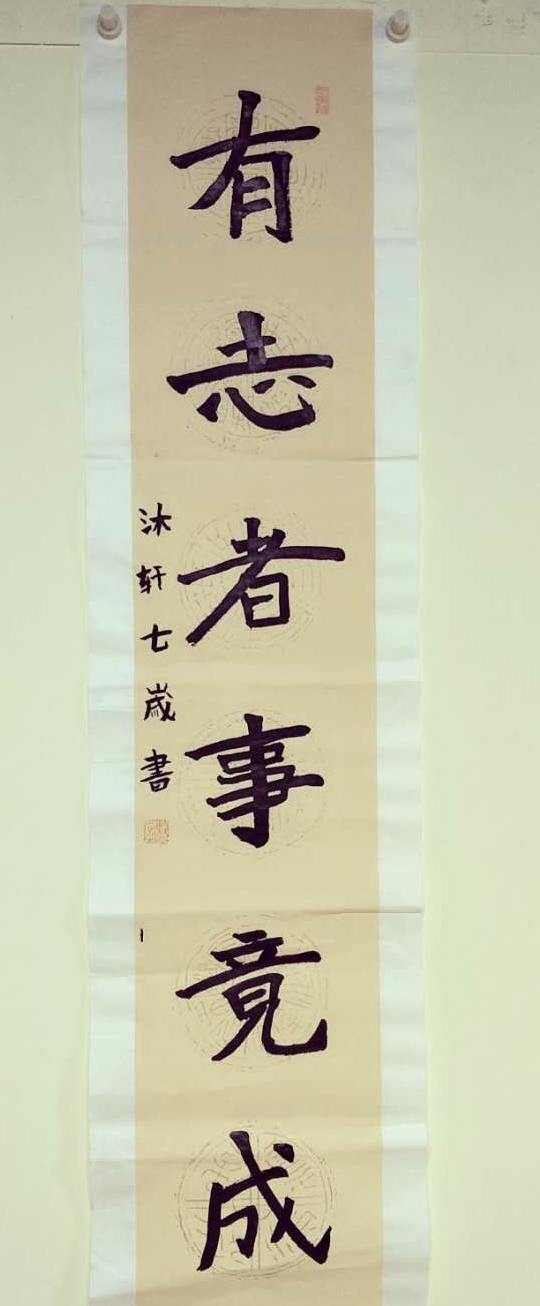 有志者事竟成
沐轩七歲書